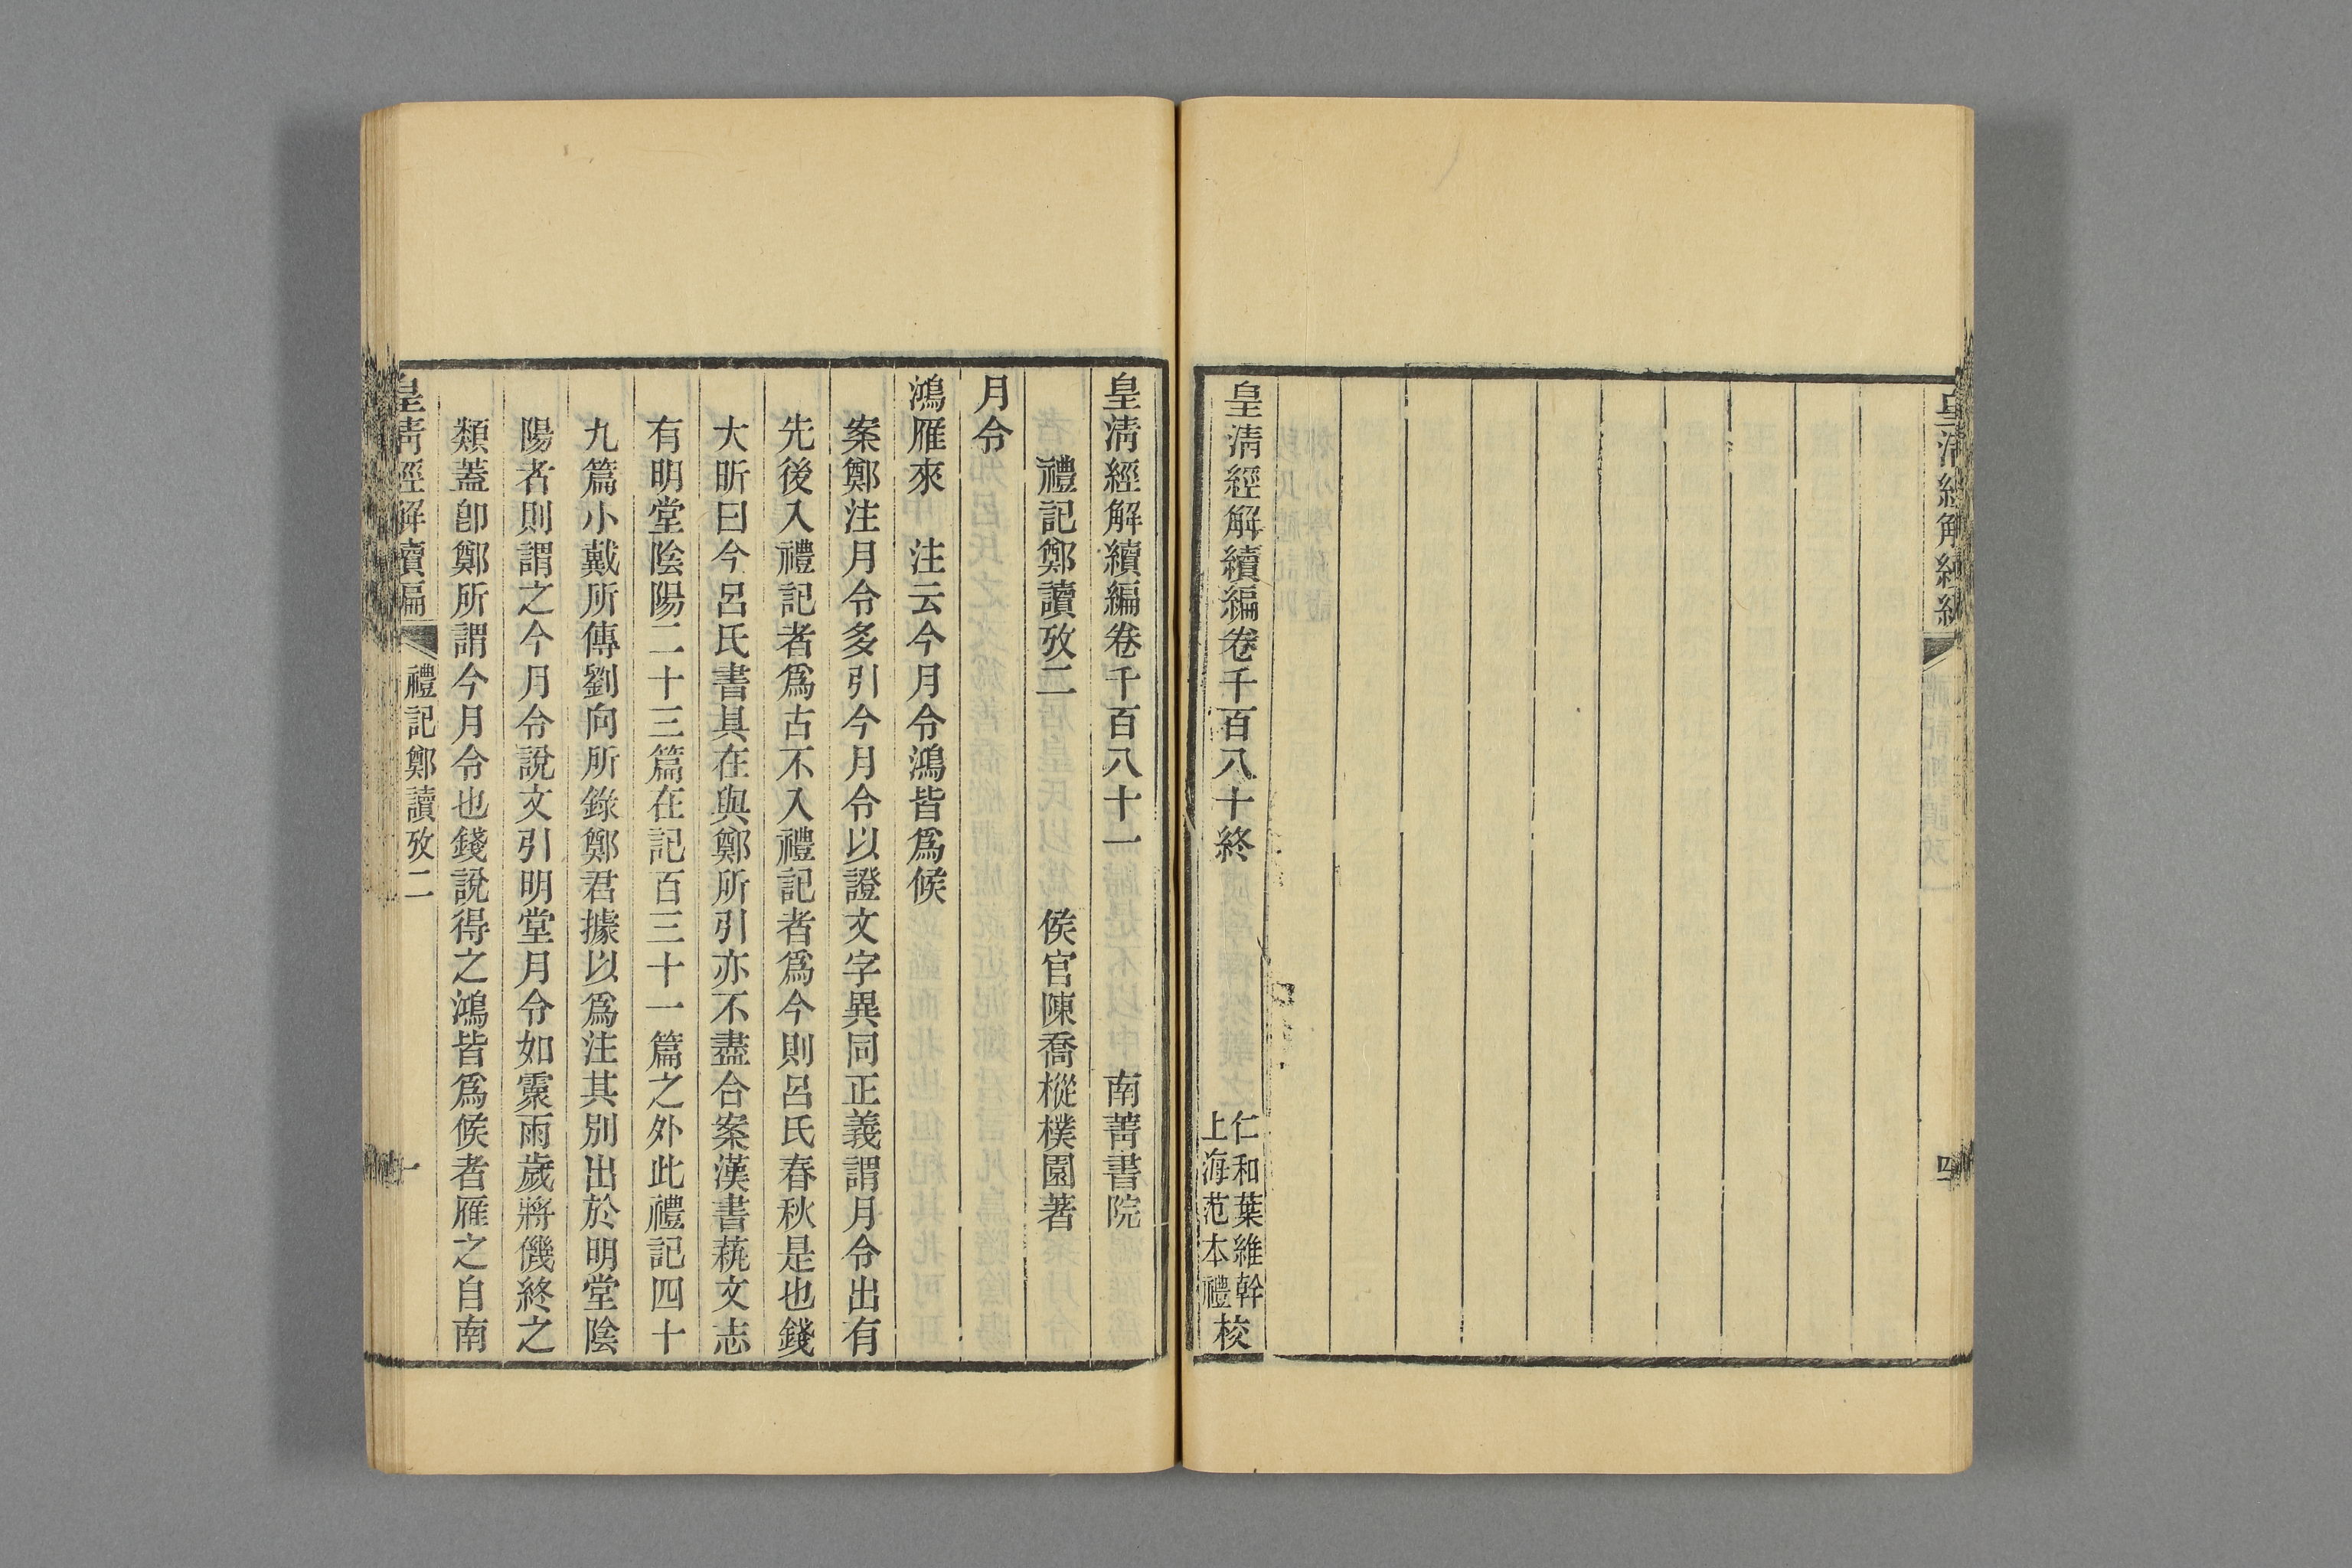 皇清經解續編
四
皇清經解續編卷千百八十終
仁和葉維幹
上海范本禮
校
皇清經解續編卷千百八十一 南菁書院
禮記鄭讀攷二 侯官陳喬樅樸園著
月令
鴻雁來 注云今月令鴻皆爲候
案鄭注月令多引今月令以證文字異同正義謂月令出有
先後入禮記者爲古不入禮記者爲今則呂氏春秋是也錢
大昕曰今呂氏書具在與鄭所引亦不盡合案漢書蓺文志
有明堂陰陽二十三篇在記百三十一篇之外此禮記四十
九篇小戴所傳劉向所錄鄭君據以爲注其別出於明堂陰
陽者則謂之今月令說文引明堂月令如霥雨歲將僟終之
類蓋卽鄭所謂今月令也錢說得之鴻皆爲候者雁之自南
皇清經解續編 禮記鄭讀攷二 一